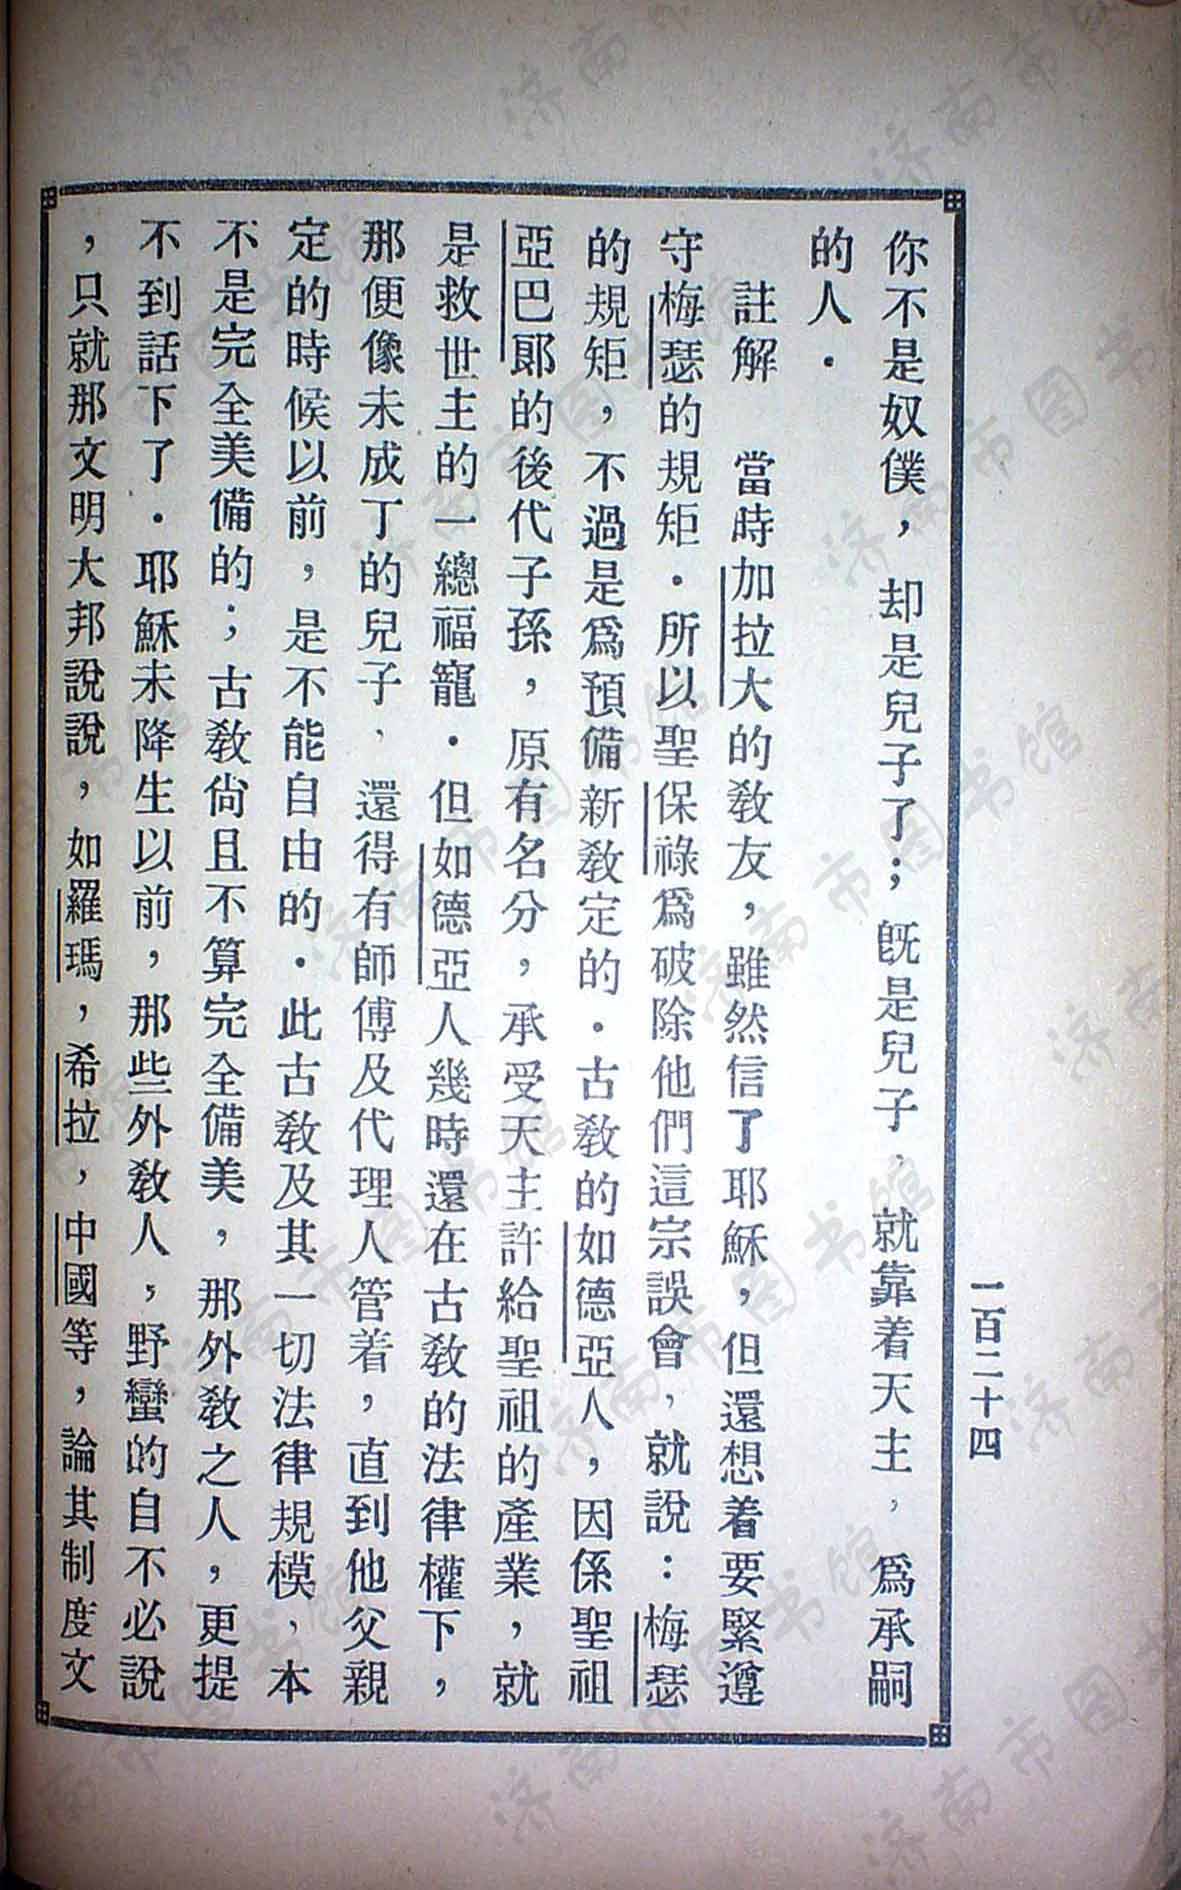 你不是奴僕，却是兒子了；既是兒子，就靠着天主，爲承嗣
的人．
註解　當時加拉大的敎友，雖然信了耶穌，但還想着要緊遵
守梅瑟的規矩．所以聖保祿爲破除他們這宗誤會，就說：梅瑟
的規矩，不過是爲預備新敎定的．古敎的如德亞人，因係聖祖
亞巴郞的後代子孫，原有名分，承受天主許給聖祖的產業，就
是救世主的一總福寵．但如德亞人幾時還在古敎的法律權下，
那便像未成丁的兒子，還得有師傅及代理人管着，直到他父親
定的時候以前，是不能自由的．此古敎及其一切法律規模，本
不是完全美備的；古敎尙且不算完全備美，那外敎之人，更提
不到話下了．耶穌未降生以前，那些外敎人，野蠻的自不必說
，只就那文明大邦說說，如羅瑪，希拉，中國等，論其制度文
一百二十四
济南市图书馆